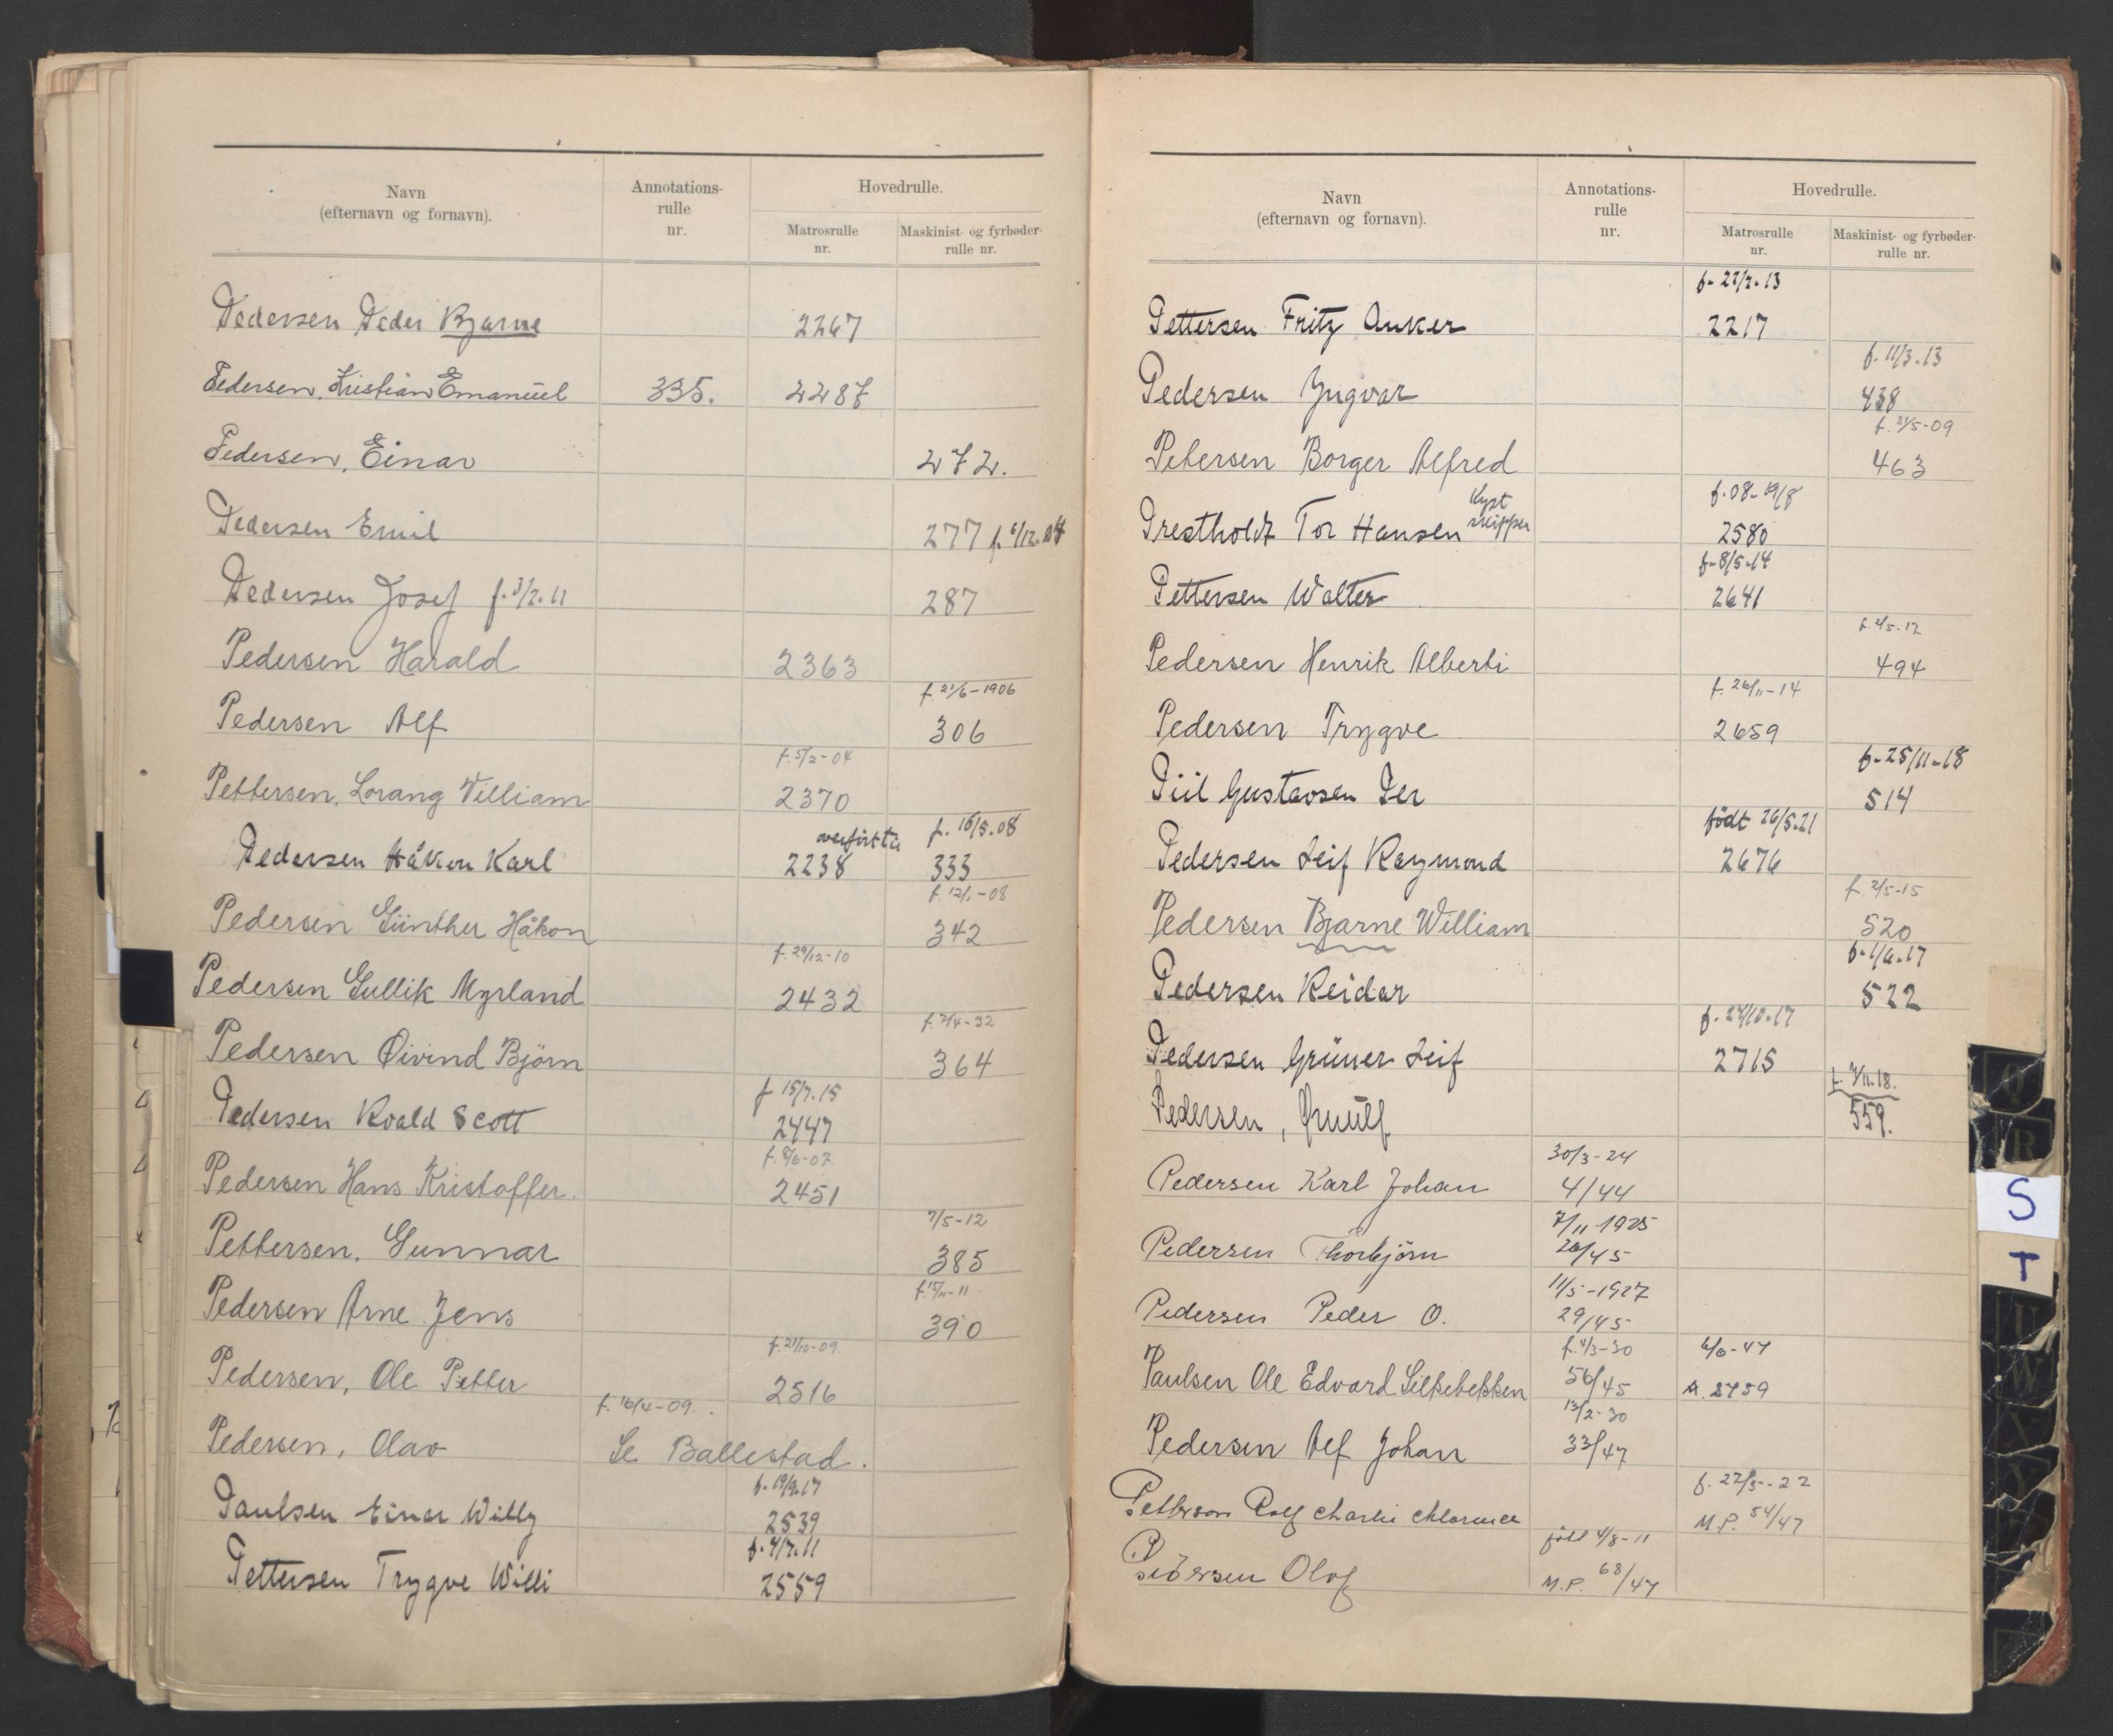 Navn
(efternavn og fornavn).
Annotations-
rulle
nr.
Hovedrulle.
Matrosrulle
nr.
Maskinist- og fyrbøder-
rulle nr.
Pedersen Peder Bjarne 2267
Pedersen, Kristian Emanuel 335. 2287
Pedersen, Einar 272.
Pedersen Emil 277 f. 6/12.04
Pedersen Josef f. 3/2.11 287
Pedersen Harald 2363
f. 21/6-1906
Pedersen Alf 306
f. 5/2-04
Pettersen, Lorang Villiam 2370
overført til f. 16/5.08
Pedersen Håkon Karl 2238 333
f. 12/1-08
Pedersen Günther Håkon 342
f. 29/12-10
Pedersen Gullik Myrland 2432
f. 2/4-32
Pedersen Øivind Bjørn 364
f 15/7.15
Pedersen Roald Scott 2447
f. 8/6-07
Pedersen Hans Kristoffer. 2451
7/5-12
Pettersen, Gunnar 385
f. 15/11-11
Pedersen Arne Jens 390
f. 21/10-09.
Pedersen, Ole Petter 2516
f. 16/4-09.
Pedersen, Olav Se Ballestad.
f. 19/9.17
Paulsen Einar Willy 2539
f. 4/7.11
Pettersen Trygve Willi 2559
Navn
(efternavn og fornavn).
Annotations-
rulle
nr.
Hovedrulle.
Matrosrulle
nr.
Maskinist- og fyrbøder-
rulle nr.
f. 27/7.13
Pettersen Fritz Anker 2217
f. 11/3.13
Pedersen Yngvar 438
f. 31/5-09
Petersen Borger Alfred 463
Kyst f. 08-19/8
Prestholdt Tor Hansen skipper 2580
f. 8/5.14
Pettersen Walter 2641
f. 2/5-12
Pedersen Henrik Alberti 494
f. 26/11-14
Pedersen Trygve 2659
f. 25/11-18
Piil Gustavsen Per 514
født 26/5.21
Pedersen Leif Raymond 2676
f. 2/5-15
Pedersen Bjarne William 520
f. 1/6.17
Pedersen Reidar 522
f. 24/10.17
Pedersen Grüner Leif 2715
f. 7/11.18.
Pedersen, Ørnulf 559.
30/3-24
Pedersen Karl Johan 4/44
7/11-1925
Pedersen Thorbjørn 28/45
11/5-1927
Pedersen Peder O. 29/45
f. 4/3-30 6/6-47
Paulsen Ole Edvard Silkebekken 56/45 A. 2759
13/2-30
Pedersen Alf Johan 33/47
f. 22/5-22
Petterson Rolf Charlie M.P. 54/47
født 4/8-11
Pedersen Olof M.P. 68/47
Q
R
S
T
U
W
X
Y